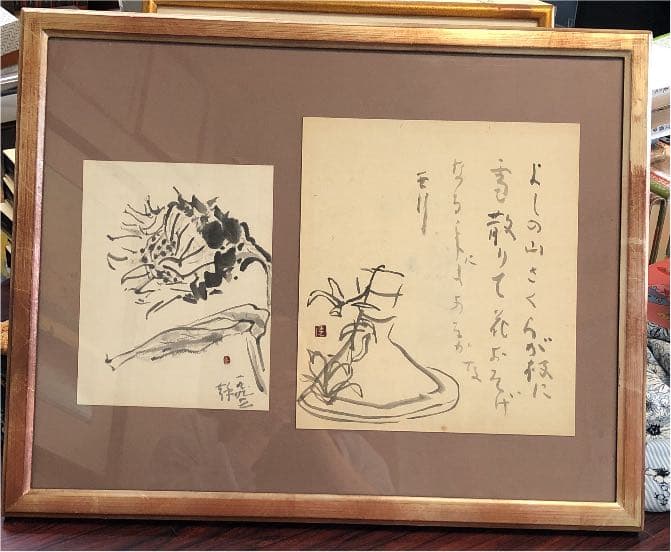 よしの山さくらが枝に
雪散りて花おそげ
なる年にもあるかな
西行
一九九二